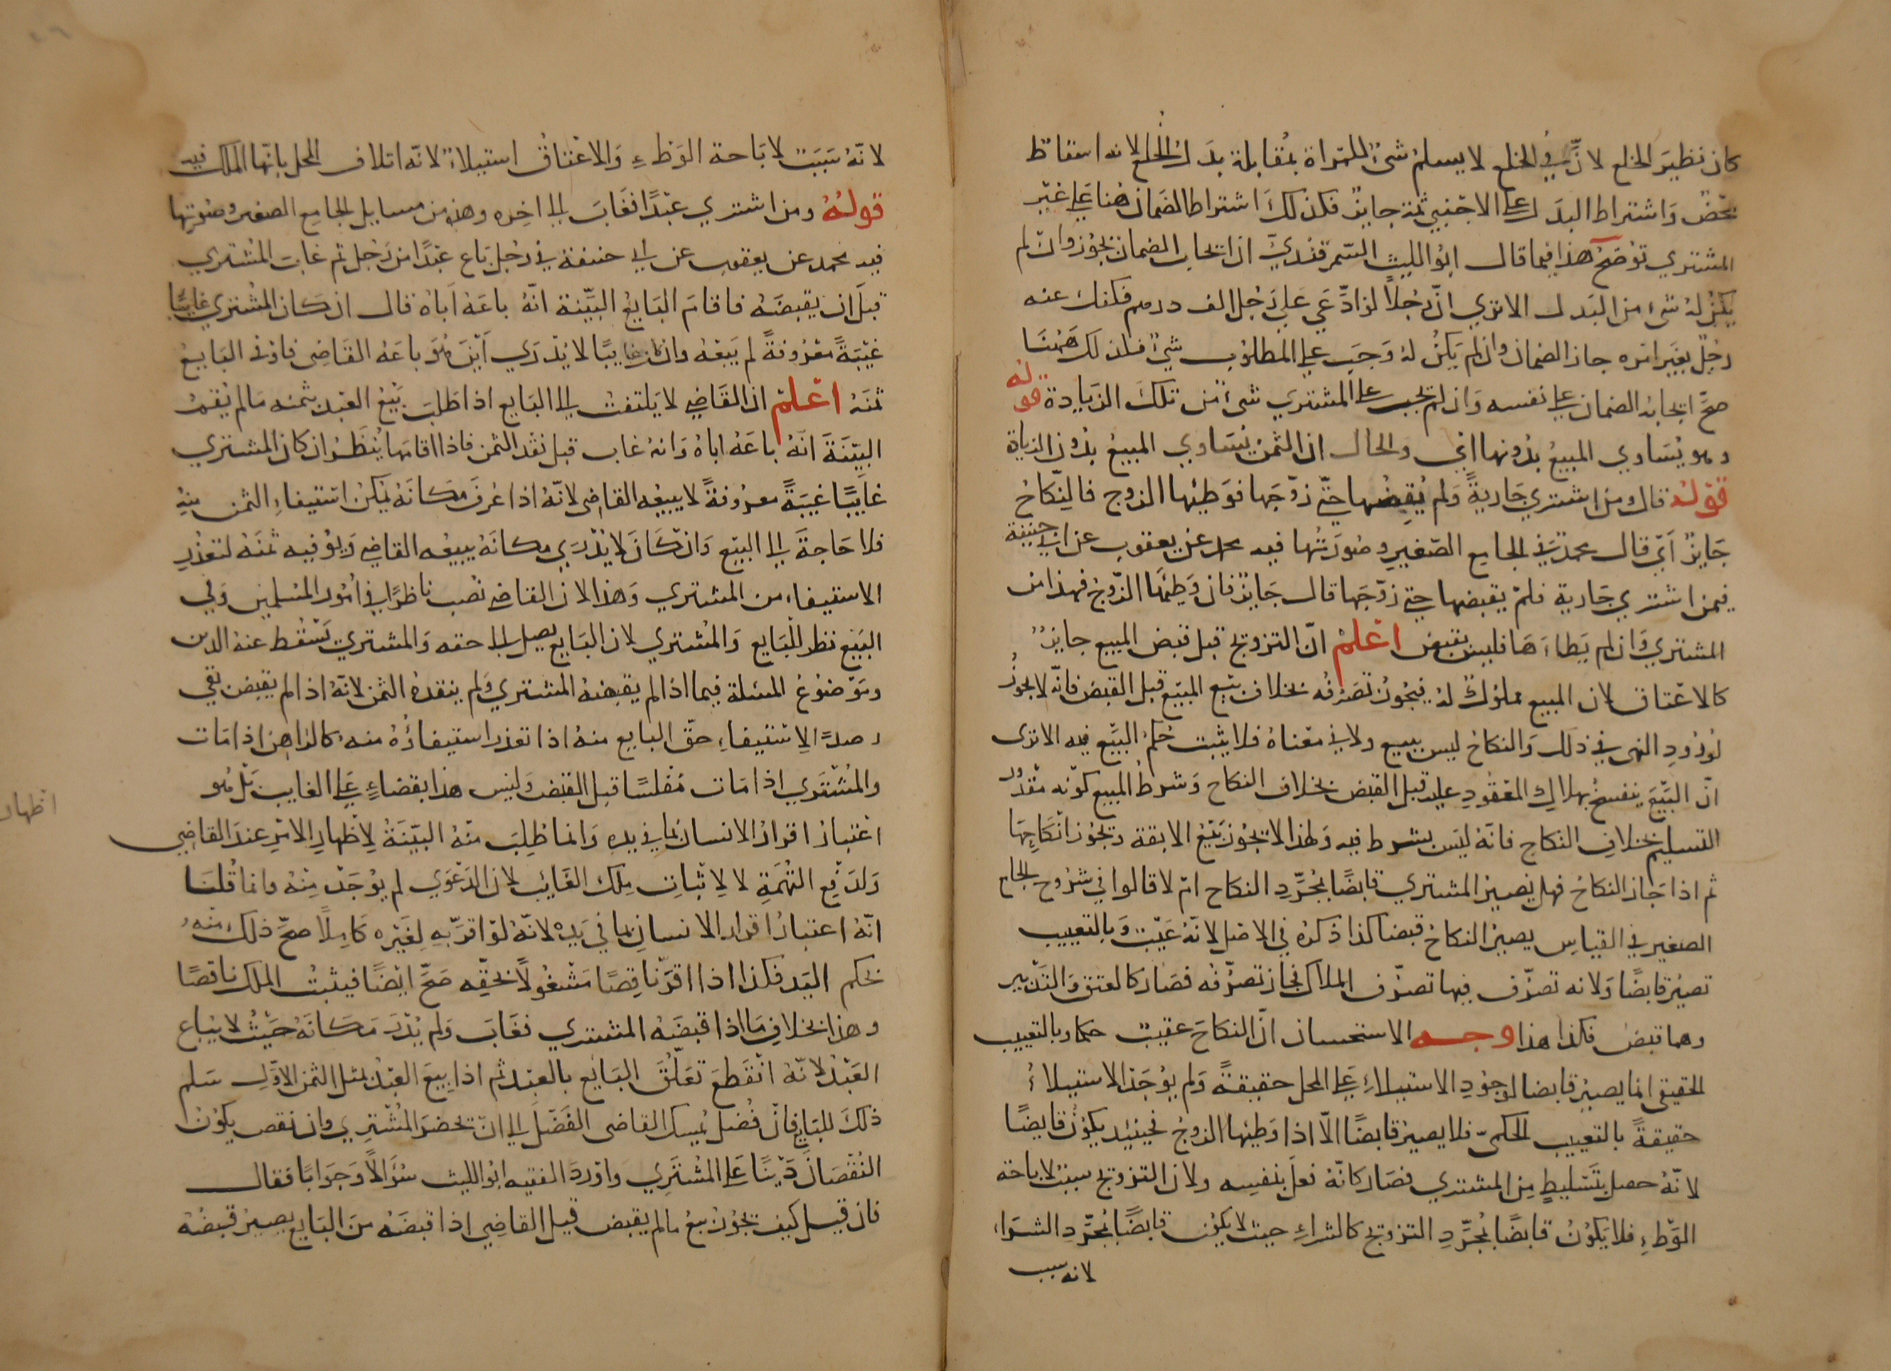 كان نظير الخلع لان في الخلع لا يسلم شئ للمراة بمقابلة بدل الخلع لانه اسقاط
محض واشتراط البدل على الاجنبي ثمة جايز فكذلك اشتراط الضمان هنا على غير
المشتري توضحه هذا فيما قال ابو الليث السمرقندي ان ايجاب الضمان يجوز وان لم
يكن له شئ من البدل الا تري ان رجلا لو ادعي علي رجل الف درهم فكفل عنه
رجل بغير امره جاز الضمان وان لم يكن له وجب علي المطلوب شئ فكذلك ههنا
صح ايجاب الضمان علي نفسه وان لم تجب علي المشتري شئ من تلك الزيادة قوله
وهو يساوي المبيع بدونها اي والحال ان الثمن يساوي المبيع بدون الزيادة
قوله قال ومن اشتري جارية ولم يقبضها حتي زوجها فوطئها الزوج فالنكاح
جايز اي قال محمد في الجامع الصغير وصورتها فيه محمد عن يعقوب عن ابي حنيفة
فيمن اشتري جارية فلم يقبضها حتي زوجها قال جايز فان وطئها الزوج فهذا من
المشتري وان لم يطاءها فليس بقبض اعلم ان التزويج قبل قبض المبيع جايز
كالاعتاق لان المبيع مملوك له فيجوز تصرفه بخلاف بيع المبيع قبل القبض فانه لا يجوز
لورود النهي في ذلك والنكاح ليس ببيع ولا في معناه فلا يثبت حكم البيع فيه الا تري
ان البيع ينفسخ بهلاك المعقود عليه قبل القبض بخلاف النكاح وشرط المبيع كونه مقدور
التسليم بخلاف النكاح فانه ليس بشرط فيه ولهذا لا يجوز بيع الابقة ويجوز انكاحها
ثم اذا جاز النكاح فهل يصير المشتري قابضا بمجرد النكاح ام لا قالوا في شروح الجامع
الصغير في القياس يصير النكاح قبضا كذا ذكره في الاصل لانه عيب وبالتعييب
تصير قابضا ولانه تصرف فيها تصرف الملاك فجاز تصرفه فصار كالعتق والتدبير
وهما قبض فكذا هذا وجه الاستحسان ان النكاح عقيب حكما وبالتعييب
الحقيقي انما يصير قابضا لوجود الاستيلاء على المحل حقيقة ولم يوجد الاستيلاء
حقيقة بالتعييب الحكمي فلا يصير قابضا الا اذا وطئها الزوج فحينئذ يكون قابضا
لانه حصل بتسليط من المشتري فصار كانه فعل بنفسه ولان التزويج سبب لاباحة
الوطء فلا يكون قابضا بمجرد التزويج كالشراء حيث لا يكون قابضا بمجرد الشراء
لانه سبب
لانه سبب لاباحة الوطء والاعتاق استيلاء لانه اتلاف المحل بانهاء الملك فيه
قوله ومن اشتري عبدا فغاب الي اخره وهذه من مسايل الجامع الصغير وصورتها
فيه محمد عن يعقوب عن ابي حنيفة في رجل باع عبدا من رجل ثم غاب المشتري
قبل ان يقبضه فاقام البايع البينة انه باعه اياه قال ان كان المشتري غايبا
غيبة معروفة لم يبعه وان كان غايبا لا يدري اين هو باعه القاضي فاوفي البايع
ثمنه اعلم ان القاضي لا يلتفت الي البايع اذا طلب بيع العبد بثمنه ما لم يقم
البينة انه باعه اياه وانه غاب قبل نقد الثمن فاذا اقامها ينظر ان كان المشتري
غايبا غيبة معروفة لا يبيعه القاضي لانه اذا عرف مكانه يمكن استيفاء الثمن منه
فلا حاجة الي البيع وان كان لا يدري مكانه يبيعه القاضي ويوفيه ثمنه لتعذر
الاستيفاء من المشتري وهذا لان القاضي نصب ناظرا في امور المسلمين وفي
البيع نظر للبايع والمشتري لان البايع يصل الي حقه والمشتري يسقط عنه الدين
وموضوع المسئلة فيما اذا لم يقبضه المشتري ولم ينقده الثمن لانه اذا لم يقبض بقي
رصدا لاستيفاء حق البايع منه اذا تعذر استيفاؤه منه كالراهن اذا مات
والمشتري اذا مات مفلسا قبل القبض وليس هذا بقضاء علي الغايب بل هو
اعتبار اقرار الانسان بما في يده وانما طلب منه البينة لاظهار الامر عند القاضي
ولدفع التهمة لا لاثبات ملك الغائب لان الدعوي لم يوجد منه وانما قلنا
انه اعتبار اقرار الانسان بما في يده لانه لو اقر به لغيره كاملا صح ذلك منه
بحكم اليد فكذا اذا اقر ناقصا مشغولا بحقه صح ايضا فيثبت الملك ناقصا
وهذا بخلاف ما اذا قبضه المشتري فغاب ولم يدر مكانه حيث لا يباع
العبد لانه انقطع تعلق البايع بالعبد ثم اذا بيع العبد بمثل الثمن الاول سلم
ذلك للبايع فان فضل يمسك القاضي الفضل الي ان تحضر المشتري وان نقص يكون
النقصان دينا علي المشتري واورد الفقيه ابو الليث سؤالا وجوابا فقال
فان قيل كيف يجوز بيع ما لم يقبض قيل القاضي اذا قبضه من البايع يصير قبضه
اظهار